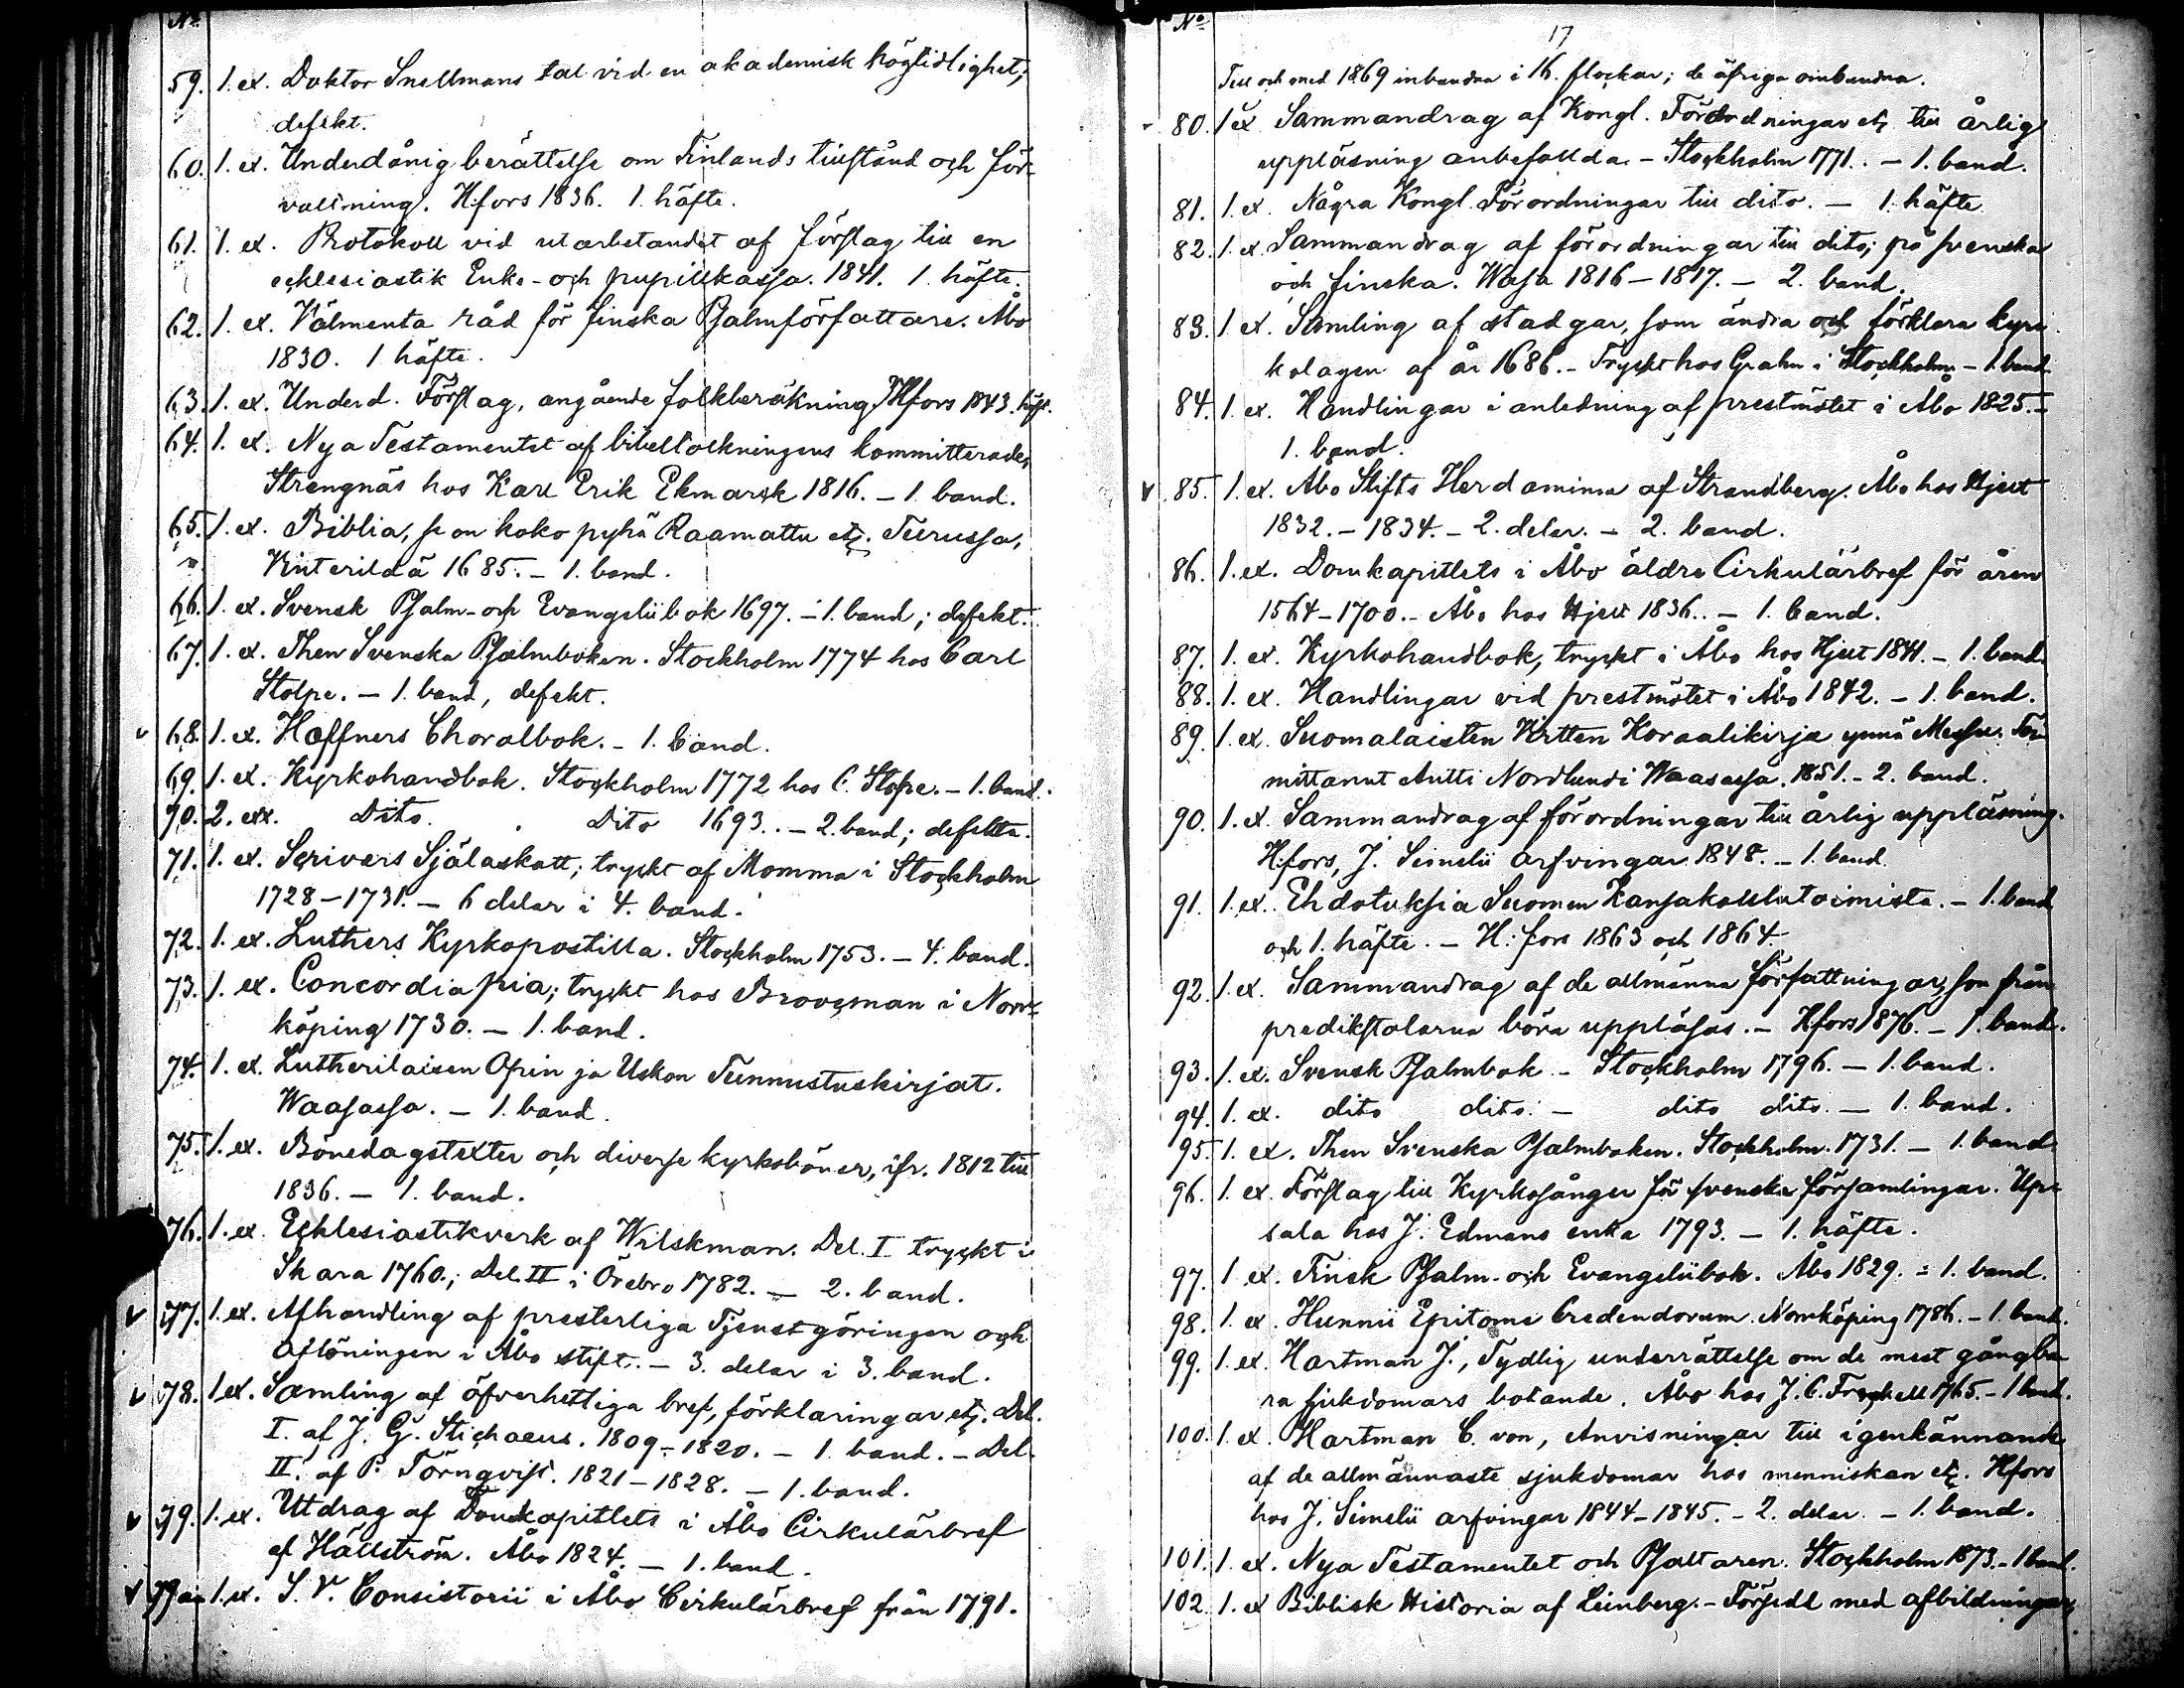 No
59. 1. ex. Doktor Snellmans tal vid en akademisk högtidlighet;
defekt.
60. 1. ex. Underdånig berättelse om Finlands tillstånd och för-
valtning. H:fors 1836. 1. häfte.
61. 1. ex. Protokoll vid utarbetandet af förslag till en
ecklesiastik Enke- och pupillkassa. 1841. 1. häfte.
62. 1. ex. Välmenta råd för finska Psalmförfattare. Åbo
1830. 1 häfte.
63. 1. ex. Underd. Förslag, angående folkberäkning. Hfors 1843. häft.
64. 1. ex. Nya Testamentet af bibeltolkningens kommitterade,
Strengnäs hos Karl Erik Ekmarck 1816. – 1. band.
65. 1. ex. Biblia, se on koko pyhä Raamattu etc. Turussa,
1685. – 1. band.
66. 1. ex. Svensk Psalm- och Evangeliibok 1697. – 1. band; defekt.
67. 1. ex. Then Svenska Psalmboken. Stockholm 1774 hos Carl
Stolpe. – 1. band, defekt.
68. 1. ex. Hæffners Choralbok. – 1. band.
69. 1. ex. Kyrkohandbok. Stockholm 1772 hos C. Stolpe. – 1. band.
70. 2. exx. Dito. Dito 1693. – 2. band; defekta.
71. 1. ex. Scrivers Själaskatt; tryckt af Momma i Stockholm
1728–1731. – 6 delar i 4. band.
72. 1. ex. Luthers Kyrkopostilla. Stockholm 1753. – 4. band.
73. 1. ex. Concordia pia; tryckt hos Broocman i Norr-
köping 1730. – 1. band.
74. 1. ex. Lutherilaisen Opin ja Uskon Tunnustuskirjat.
Waasassa. – 1. band.
75. 1. ex. Bönedagstexter och diverse kyrkoböner, ifr. 1812 till
1836. – 1. band.
76. 1. ex. Ecklesiastikverk af Wilskman. Del. I tryckt i
Skara 1760.; Del. II i Örebro 1782. – 2. band.
77. 1. ex. Afhandling af presterliga Tjenstgöringen och
Aflöningen i Åbo stift. – 3. delar i 3. band.
78. 1 ex. Samling af öfverhettliga bref, förklaringar etc. Del.
I. af J. G. Stichaeus. 1809–1820. – 1. band. – Del.
II. af P. Törnqvist. 1821–1828. – 1. band.
79. 1. ex. Utdrag af Domkapitlets i Åbo Cirkulärbref
af Hällström. Åbo 1824. – 1. band.
79 a. 1. ex. S. V. Consistorii i Åbo Cirkulärbref från 1791.
No
17
Till och med 1869 inbundna i 16. flockar; de öfriga oinbundna.
80. 1 ex Sammandrag af Kongl. Förordningar etc till årlig
uppläsning anbefallda. – Stockholm 1771. – 1. band.
81. 1. ex. Några Kongl. Förordningar till dito. – 1. häfte.
82. 1. ex. Sammandrag af förordningar till dito; på svenska
och finska. Wasa 1816–1817. – 2. band.
83. 1. ex. Samling af stadgar, som ändra och förklara kyr-
kolagen af år 1686. – Tryckt hos Grahn i Stockholm – 1. band.
84. 1. ex. Handlingar i anledning af prestmötet i Åbo 1825. –
1. band.
85. 1. ex. Åbo Stifts Herdaminne af Strandberg. Åbo hos Hjelt
1832. – 1834. – 2. delar. – 2. band.
86. 1. ex. Domkapitlets i Åbo äldre Cirkulärbref för åren
1564–1700. – Åbo hos Hjelt 1836. – 1. band.
87. 1. ex. Kyrkohandbok, tryckt i Åbo hos Hjelt 1841. – 1. band.
88. 1. ex. Handlingar vid prestmötet i Åbo 1842. – 1. band.
89. 1. ex. Suomalaisten Wirtten Koraalikirja ynnä Messu. Toi-
mittanut Antti Nordlund. Waasassa. 1851. – 2. band.
90. 1. ex. Sammandrag af förordningar till årlig uppläsning.
H:fors, J. Simelii arfvingar 1848. – 1. band.
91. 1. ex. Ehdotuksia Suomen Kansakoulutoimista. – 1. band
och 1. häfte. – H:fors 1863 och 1864.
92. 1. ex. Sammandrag af de allmänna författningar, som från
predikstolarna böra uppläsas. – Hfors 1876. – 1. band.
93. 1. ex. Svensk Psalmbok. – Stockholm 1796. – 1. band.
94. 1. ex. dito dito. – dito dito. – 1. band.
95. 1. ex. Then Svenska Psalmboken. Stockholm. 1731. – 1. band
96. 1. ex. Förslag till Kyrkosånger för svenska församlingar. Up-
sala hos J. Edmans enka 1793. – 1. häfte.
97. 1 ex. Finsk Psalm- och Evangeliibok. Åbo 1829. – 1. band.
98. 1. ex. Hunnii Epitome Credendorum. Norrköping 1786. – 1. band.
99. 1. ex. Hartman J., Tydlig underrättelse om de mest gångba-
ra sjukdomars botande. Åbo hos J. C. Frenckell 1765. – 1 band.
100. 1. ex. Hartman C. von, Anvisningar till igenkännande
af de allmännaste sjukdomar hos menniskan etc. Hfors
hos J. Simelii arfvingar 1844–1845. – 2. delar. – 1. band.
101. 1. ex. Nya Testamentet och Psaltaren. Stockholm 1873. – 1 band.
102. 1. ex Biblisk Historia af Leinberg. – Försedd med afbildningar,